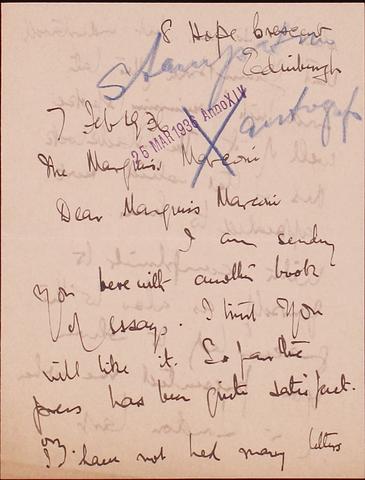 8 Hope Crescent
Edinburgh
7 Feb 193
25 MAR 1936 Anno XIV
The Marquis Marconi
Dear Marquis Marconi
I am sending
you herewith another book
of essays. I trust you
will like it. So far the
press has been quite satisfact.
ory. I have not had many letters